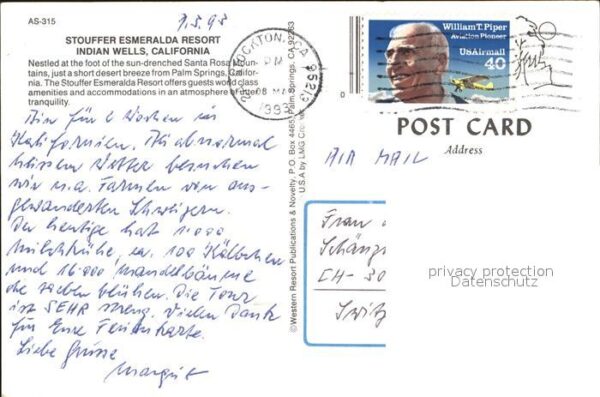 AS-315
7.3.93
STOUFFER ESMERALDA RESORT
INDIAN WELLS, CALIFORNIA
Nestled at the foot of the sun-drenched Santa Rosa Moun-
tains, just a short desert breeze from Palm Springs, Califor-
nia. The Stouffer Esmeralda Resort offers guests world class
amenities and accommodations in an atmosphere of
tranquility.
Bin für 2 Wochen in
Kalifornien. Bei abnormal
heissem Wetter besuchen
wir u.a. Farmen von aus-
gewanderten Schweizern.
Der heutige hat 1'000
Milchkühe, ca. 100 Kälbchen
und 16'000 Mandelbäume
die soeben blühen. Die Tour
ist SEHR streng. Vielen Dank
für Eure Ferienkarte.
Liebe Grüsse
Margrit
©Western Resort Publications & Novelty, P.O. Box 4465, Palm Springs, CA 92263
U.S.A by LMG
STOCKTON, CA
95213
PM
08 MAR
1993
William T. Piper
Aviation Pioneer
USAirmail
40
POST CARD
Address
AIR MAIL
Frau
CH-
privacy protection
Datenschutz